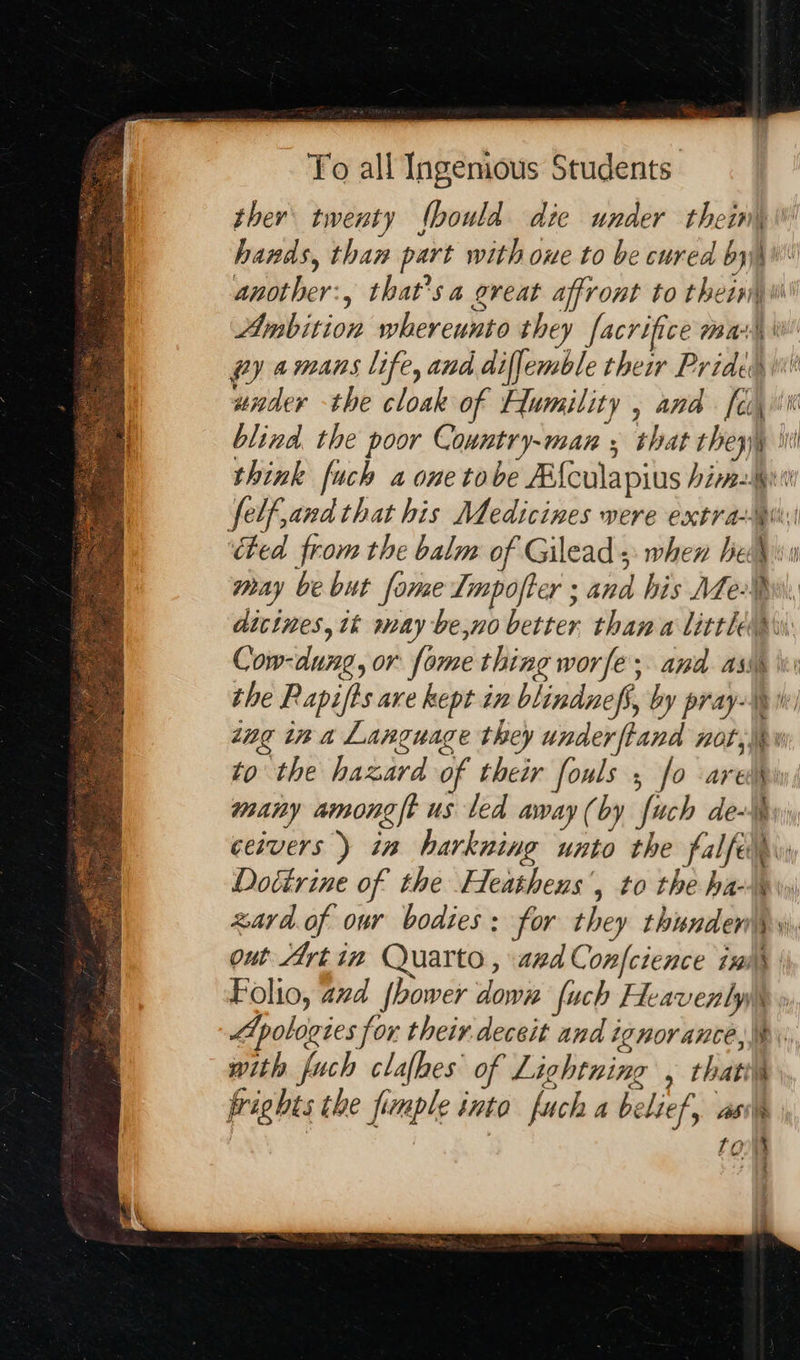 To all Ingenious Students
ther twenty ſhould die under their
hands, than part with one to be cured by
another:, that's a great affront to their
Ambition whereunto they ſacrifice ma-
ny a mans life, and diſſemble their Pride
under the cloak of Humility, and ſo
blind the poor Country-man; that they
think ſuch a one to be Æſculapius him-
ſelf, and that his Medicines were extra-
cted from the balm of Gilead; when he
may be but ſome Impoſter; and his Me-
dicines, it may be, no better than a little
Cow-dung, or ſome thing worſe; and as
the Papiſts are kept in blindneſs, by pray-
ing in a Language they underſtand not,
to the hazard of their ſouls; ſo are
many amongſt us led away (by ſuch de-
ceivers) in harkning unto the falſe
Doctrine of the Heathens, to the ha-
zard of our bodies: for they thunder
out Art in Quarto, and Conſcience in
Folio, and ſhower down ſuch Heavenly
Apologies for their deceit and ignorance,
with ſuch claſhes of Lightning, that
frights the ſimple into ſuch a belief, as
to